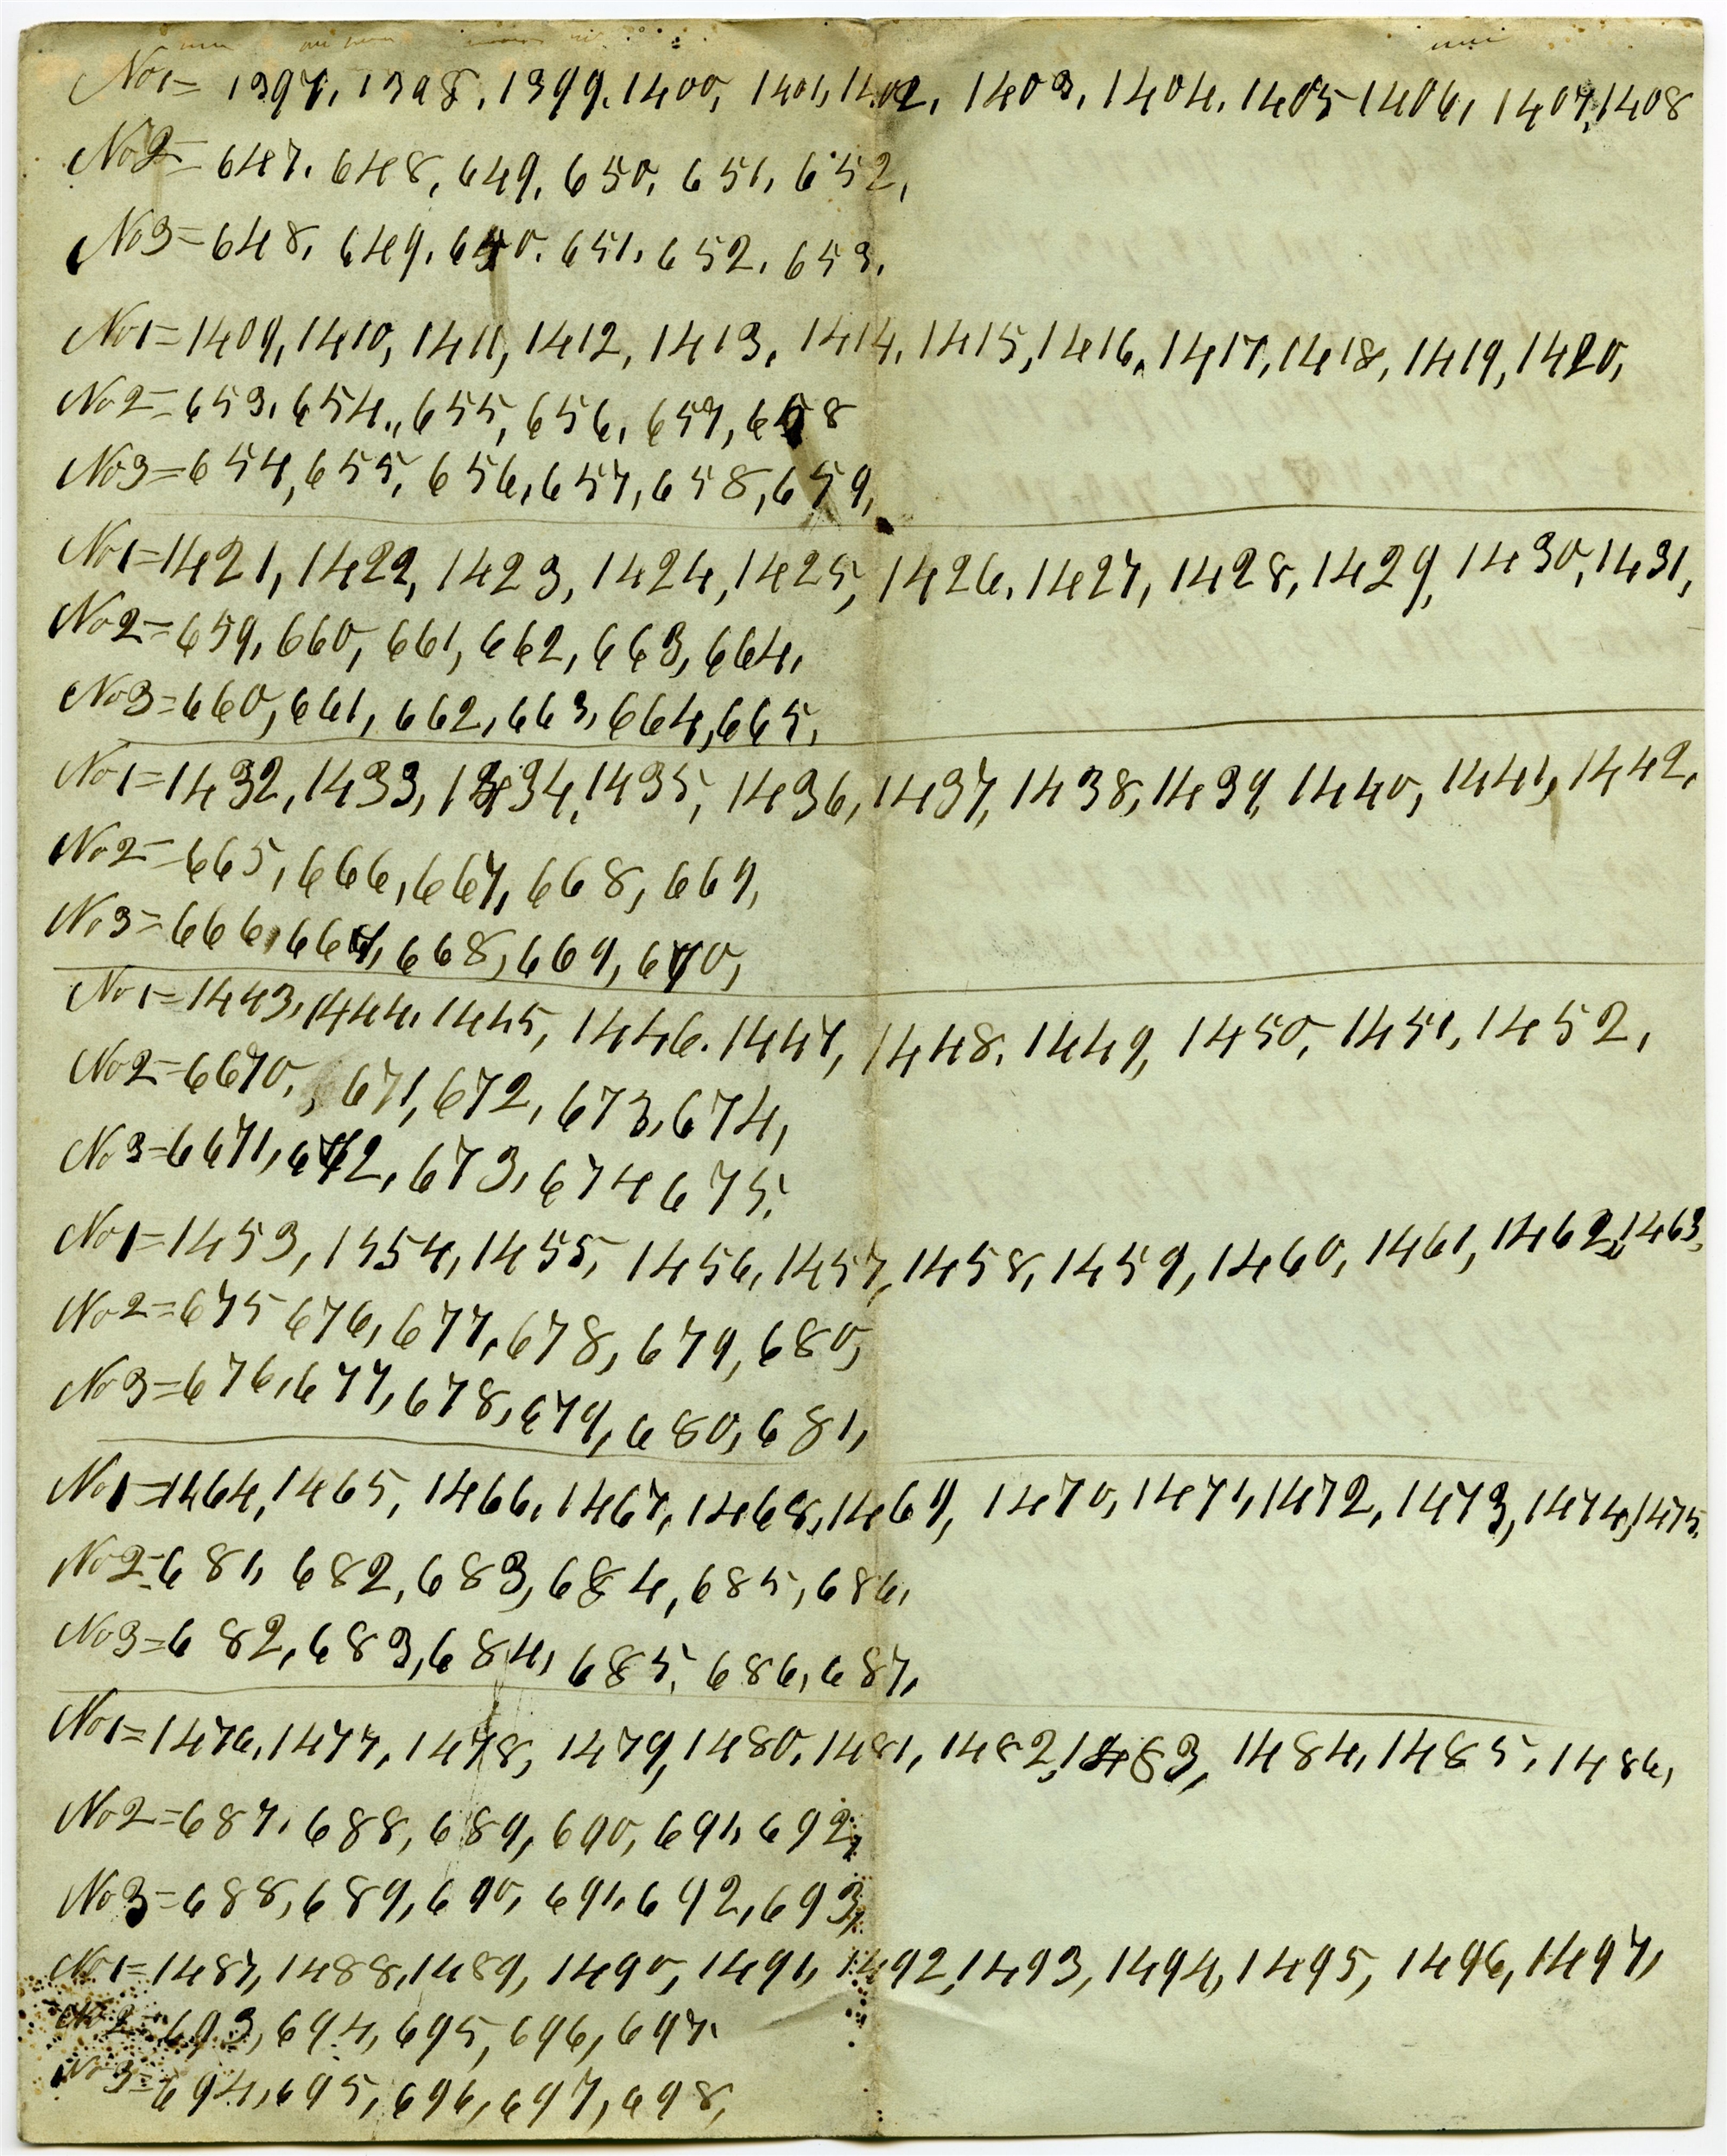 No1= 1397, 1398, 1399, 1400, 1401, 1402, 1403, 1404, 1405 1406, 1407, 1408
No2= 647, 648, 649, 650, 651, 652,
No3= 648, 649, 650, 651, 652, 653,
No1= 1409, 1410, 1411, 1412, 1413, 1414, 1415, 1416, 1417, 1418, 1419, 1420,
No2= 653, 654,, 655, 656, 657, 658
No3= 654, 655, 656, 657, 658, 659,
No1= 1421, 1422, 1423, 1424, 1425, 1426, 1427, 1428, 1429, 1430, 1431,
No2= 659, 660, 661, 662, 663, 664,
No3= 660, 661, 662, 663, 664, 665,
No1= 1432, 1433, 1434, 1435, 1436, 1437, 1438, 1439, 1440, 1441, 1442,
No2= 665, 666, 667, 668, 669,
No3= 666, 667, 668, 669, 670,
No1= 1443, 1444, 1445, 1446, 1447, 1448, 1449, 1450, 1451, 1452,
No2= 6670, 671, 672, 673, 674,
No3= 6671, 672, 673, 674 675,
No1= 1453, 1454, 1455, 1456, 1457, 1458, 1459, 1460, 1461, 1462, 1463,
No2= 675 676, 677, 678, 679, 680,
No3= 676, 677, 678, 679, 680, 681,
No1= 1464, 1465, 1466, 1467, 1468, 1469, 1470, 1471, 1472, 1473, 1474, 1475,
No2= 681, 682, 683, 684, 685, 686,
No3= 682, 683, 684, 685, 686, 687,
No1= 1476, 1477, 1478, 1479, 1480, 1481, 1482, 1483, 1484, 1485, 1486,
No2= 687, 688, 689, 690, 691, 692,
No3= 688, 689, 690, 691, 692, 693,
No1= 1487, 1488, 1489, 1490, 1491, 1492, 1493, 1494, 1495, 1496, 1497,
No2= 693, 694, 695, 696, 697,
No3= 694, 695, 696, 697, 698,